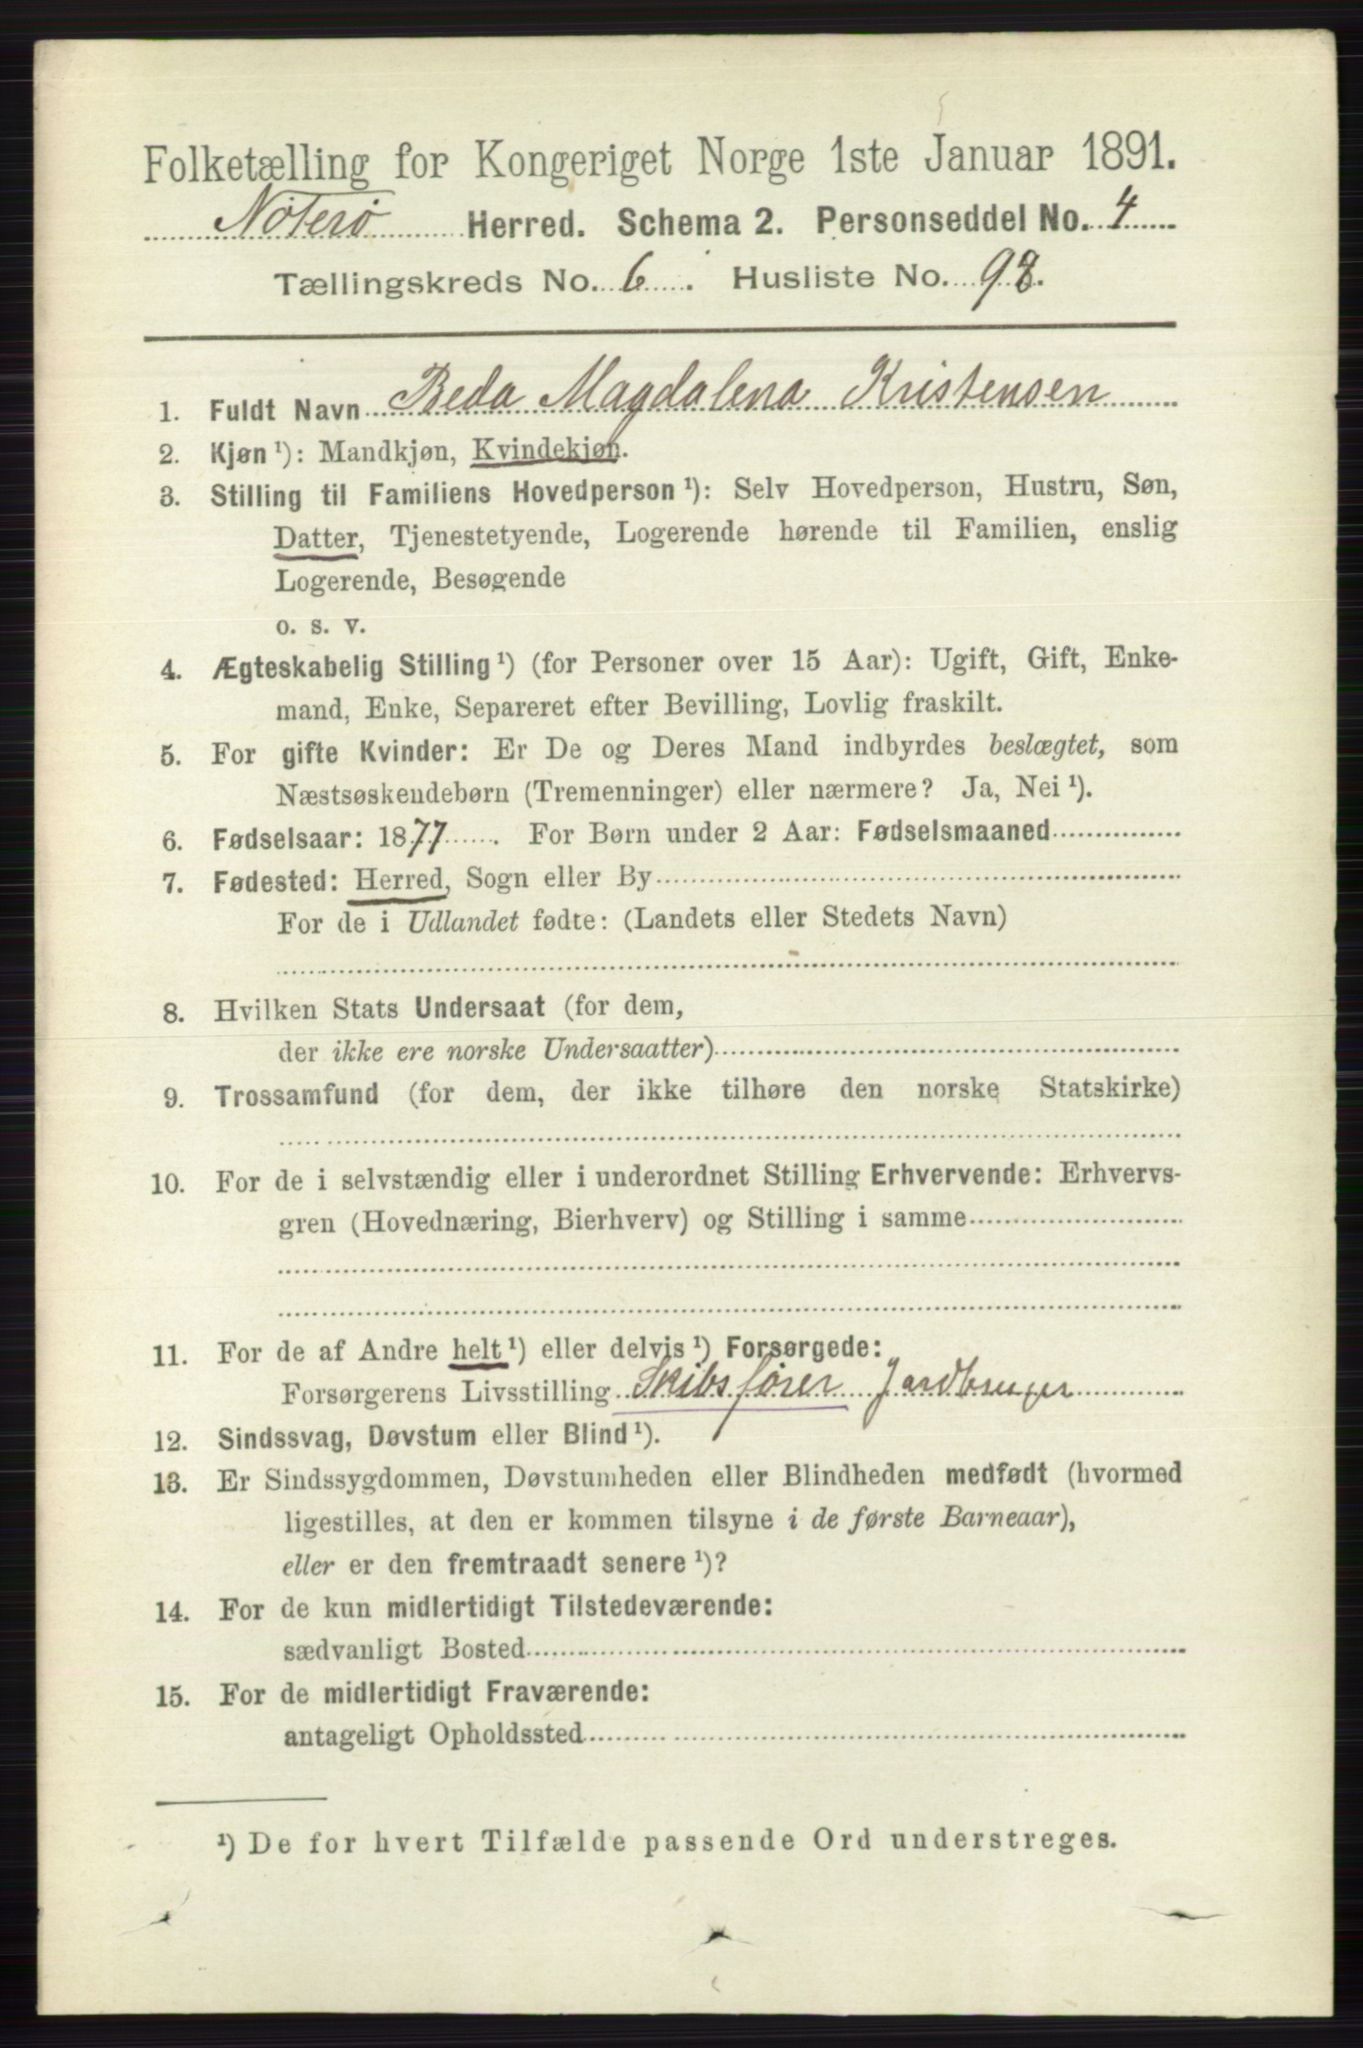 Folketælling for Kongeriget Norge 1ste Januar 1891.
Nøterø Herred. Schema 2. Personseddel No. 4
Tællingskreds No. 6. Husliste No. 98.
1. Fuldt Navn Beda Magdalena Kristensen
2. Kjøn ¹): Mandkjøn, Kvindekjøn.
3. Stilling til Familiens Hovedperson ¹): Selv Hovedperson, Hustru, Søn,
Datter, Tjenestetyende, Logerende hørende til Familien, enslig
Logerende, Besøgende
o. s. v.
4. Ægteskabelig Stilling ¹) (for Personer over 15 Aar): Ugift, Gift, Enke-
mand, Enke, Separeret efter Bevilling, Lovlig fraskilt.
5. For gifte Kvinder: Er De og Deres Mand indbyrdes beslægtet, som
Næstsøskendebørn (Tremenninger) eller nærmere? Ja, Nei ¹).
6. Fødselsaar: 1877. For Børn under 2 Aar: Fødselsmaaned
7. Fødested: Herred, Sogn eller By
For de i Udlandet fødte: (Landets eller Stedets Navn)
8. Hvilken Stats Undersaat (for dem,
der ikke ere norske Undersaatter)
9. Trossamfund (for dem, der ikke tilhøre den norske Statskirke)
10. For de i selvstændig eller i underordnet Stilling Erhvervende: Erhvervs-
gren (Hovednæring, Bierhverv) og Stilling i samme
11. For de af Andre helt ¹) eller delvis ¹) Forsørgede:
Forsørgerens Livsstilling Skibsfører Jordbruger
12. Sindssvag, Døvstum eller Blind ¹).
13. Er Sindssygdommen, Døvstumheden eller Blindheden medfødt (hvormed
ligestilles, at den er kommen tilsyne i de første Barneaar),
eller er den fremtraadt senere ¹)?
14. For de kun midlertidigt Tilstedeværende:
sædvanligt Bosted
15. For de midlertidigt Fraværende:
antageligt Opholdssted
¹) De for hvert Tilfælde passende Ord understreges.